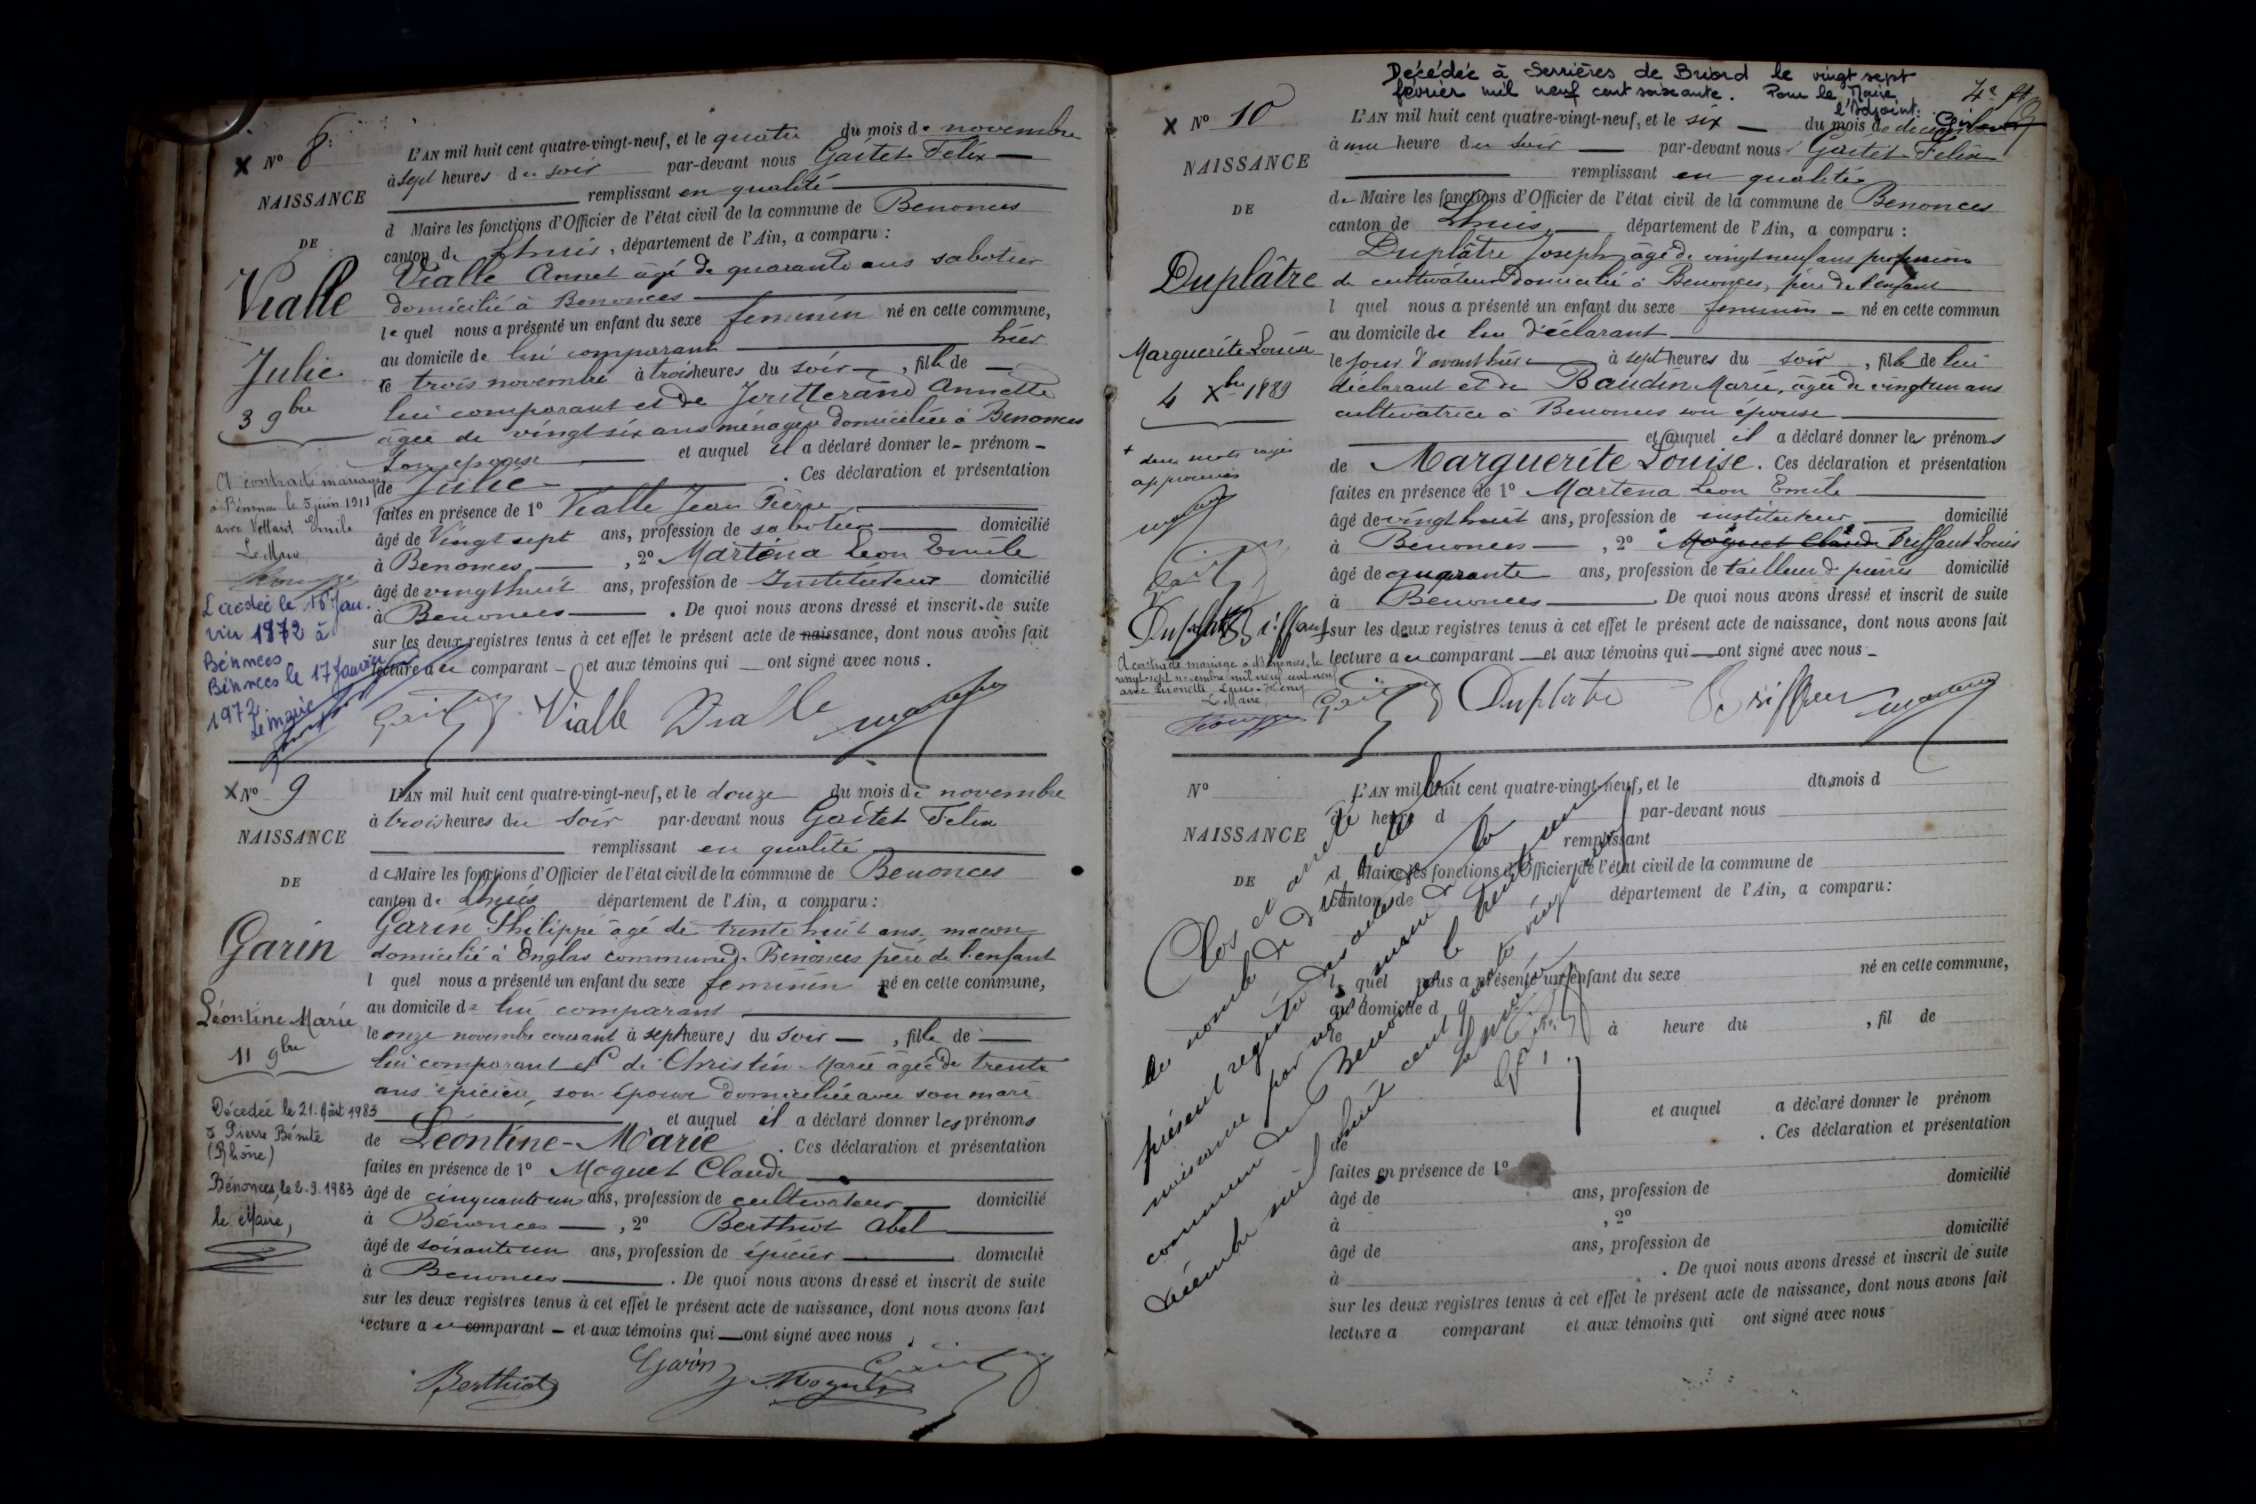 N° 8
NAISSANCE
DE
Vialle
Julie
3 9bre
A contracté mariage
à Bénonces le 5 juin 1911
avec Vettard Emile
Le Maire
Décédée le 16 Jan-
vier 1972 à
Bénonces
Bénonces le 17 Janvier
1972
Le maire
L'AN mil huit cent quatre-vingt-neuf, et le quatre du mois de novembre
à sept heures du soir par-devant nous Gaitet Félix
remplissant en qualité
d Maire les fonctions d'Officier de l'état civil de la commune de Benonces
canton de Lhuis, département de l'Ain, a comparu :
Vialle Annet âgé de quarante ans sabotier
domicilié à Benonces
lequel nous a présenté un enfant du sexe féminin né en cette commune,
au domicile de lui comparant hier
le trois novembre à trois heures du soir, fille de
lui comparant et de Annette
âgée de vingt six ans ménagère domiciliée à Benonces
son épouse et auquel il a déclaré donner le prénom
de Julie. Ces déclaration et présentation
faites en présence de 1° Vialle Jean Pierre
âgé de Vingt sept ans, profession de sabotier domicilié
à Benonces, 2° Martena Leon Emile
âgé de vingt huit ans, profession de Instituteur domicilié
à Benonces. De quoi nous avons dressé et inscrit de suite
sur les deux registres tenus à cet effet le présent acte de naissance, dont nous avons fait
lecture au comparant et aux témoins qui ont signé avec nous.
Gaitet Vialle Vialle Martena
N° 9
NAISSANCE
DE
Garin
Léontine Marie
11 9bre
Décédée le 21. Août 1983
à Pierre Bénite
(Rhône)
Bénonces, le 2.9.1983
le Maire,
L'AN mil huit cent quatre-vingt-neuf, et le douze du mois de novembre
à trois heures du soir par-devant nous Gaitet Felix
remplissant en qualité
de Maire les fonctions d'Officier de l'état civil de la commune de Benonces
canton de Lhuis département de l'Ain, a comparu :
Garin Philippe âgé de trente huit ans, maçon
domicilié à Onglas commune de Benonces père de l'enfant
l quel nous a présenté un enfant du sexe féminin né en cette commune,
au domicile de lui comparant
le onze novembre courant à sept heures du soir, fille de
lui comparant et de Christin Marie âgée de trente
ans épicière, son épouse domiciliée avec son mari
et auquel il a déclaré donner les prénoms
de Léontine-Marie. Ces déclaration et présentation
faites en présence de 1° Moguet Claude
âgé de cinquante un ans, profession de cultivateur domicilié
à Bénonces, 2° Berthiot Abel
âgé de soixante un ans, profession de épicier domicilié
à Benonces. De quoi nous avons dressé et inscrit de suite
sur les deux registres tenus à cet effet le présent acte de naissance, dont nous avons fait
lecture au comparant et aux témoins qui ont signé avec nous.
Berthiot Garin Moguet Gaitet
Décédée à Serrières de Briord le vingt sept
février mil neuf cent soixante. Pour le Maire
l'Adjoint:
4e ft
N° 10
NAISSANCE
DE
Duplâtre
Marguerite Louise
4 Xbre 1889
+ deux mots rayés
approuvés
A contracté mariage à Bénonces, le
vingt-sept novembre mil neuf cent neuf
Le Maire,
L'AN mil huit cent quatre-vingt-neuf, et le six du mois de décembre
à une heure du soir par-devant nous Gaitet Felix
remplissant en qualité
de Maire les fonctions d'Officier de l'état civil de la commune de Benonces
canton de Lhuis, département de l'Ain, a comparu :
Duplâtre Joseph âgé de vingt neuf ans profession
de cultivateur domicilié à Benonces, père de l'enfant
l quel nous a présenté un enfant du sexe féminin né en cette commun
au domicile de lui déclarant
le jour d'avant hier à sept heures du soir, fille de lui
déclarant et de Baudin Marie, âgée de vingt un ans
cultivatrice à Benonces son épouse
et auquel il a déclaré donner les prénoms
de Marguerite Louise. Ces déclaration et présentation
faites en présence de 1° Martena Leon Emile
âgé de vingt huit ans, profession de instituteur domicilié
à Benonces, 2° Moguet Claude Briffaut Louis
âgé de quarante ans, profession de tailleur de pierres domicilié
à Benonces. De quoi nous avons dressé et inscrit de suite
sur les deux registres tenus à cet effet le présent acte de naissance, dont nous avons fait
lecture au comparant et aux témoins qui ont signé avec nous
Gaitet Duplatre Martena
N°
NAISSANCE
DE
L'AN mil huit cent quatre-vingt-neuf, et le du mois d
à heure d par-devant nous
remplissant
d Maire les fonctions d'Officier de l'état civil de la commune de
canton de département de l'Ain, a comparu :
l quel nous a présenté un enfant du sexe né en cette commune,
au domicile d
le à heure du , fil de
et auquel a déclaré donner le prénom
de . Ces déclaration et présentation
faites en présence de 1°
âgé de ans, profession de domicilié
à , 2°
âgé de ans, profession de domicilié
à . De quoi nous avons dressé et inscrit de suite
sur les deux registres tenus à cet effet le présent acte de naissance, dont nous avons fait
lecture a comparant et aux témoins qui ont signé avec nous
Clos et arrêté
au nombre de dix actes le
présent registre des actes de
naissance par nous maire de la
commune de Benonces le trente un
décembre mil huit cent quatre vingt neuf
Le maire
Gaitet